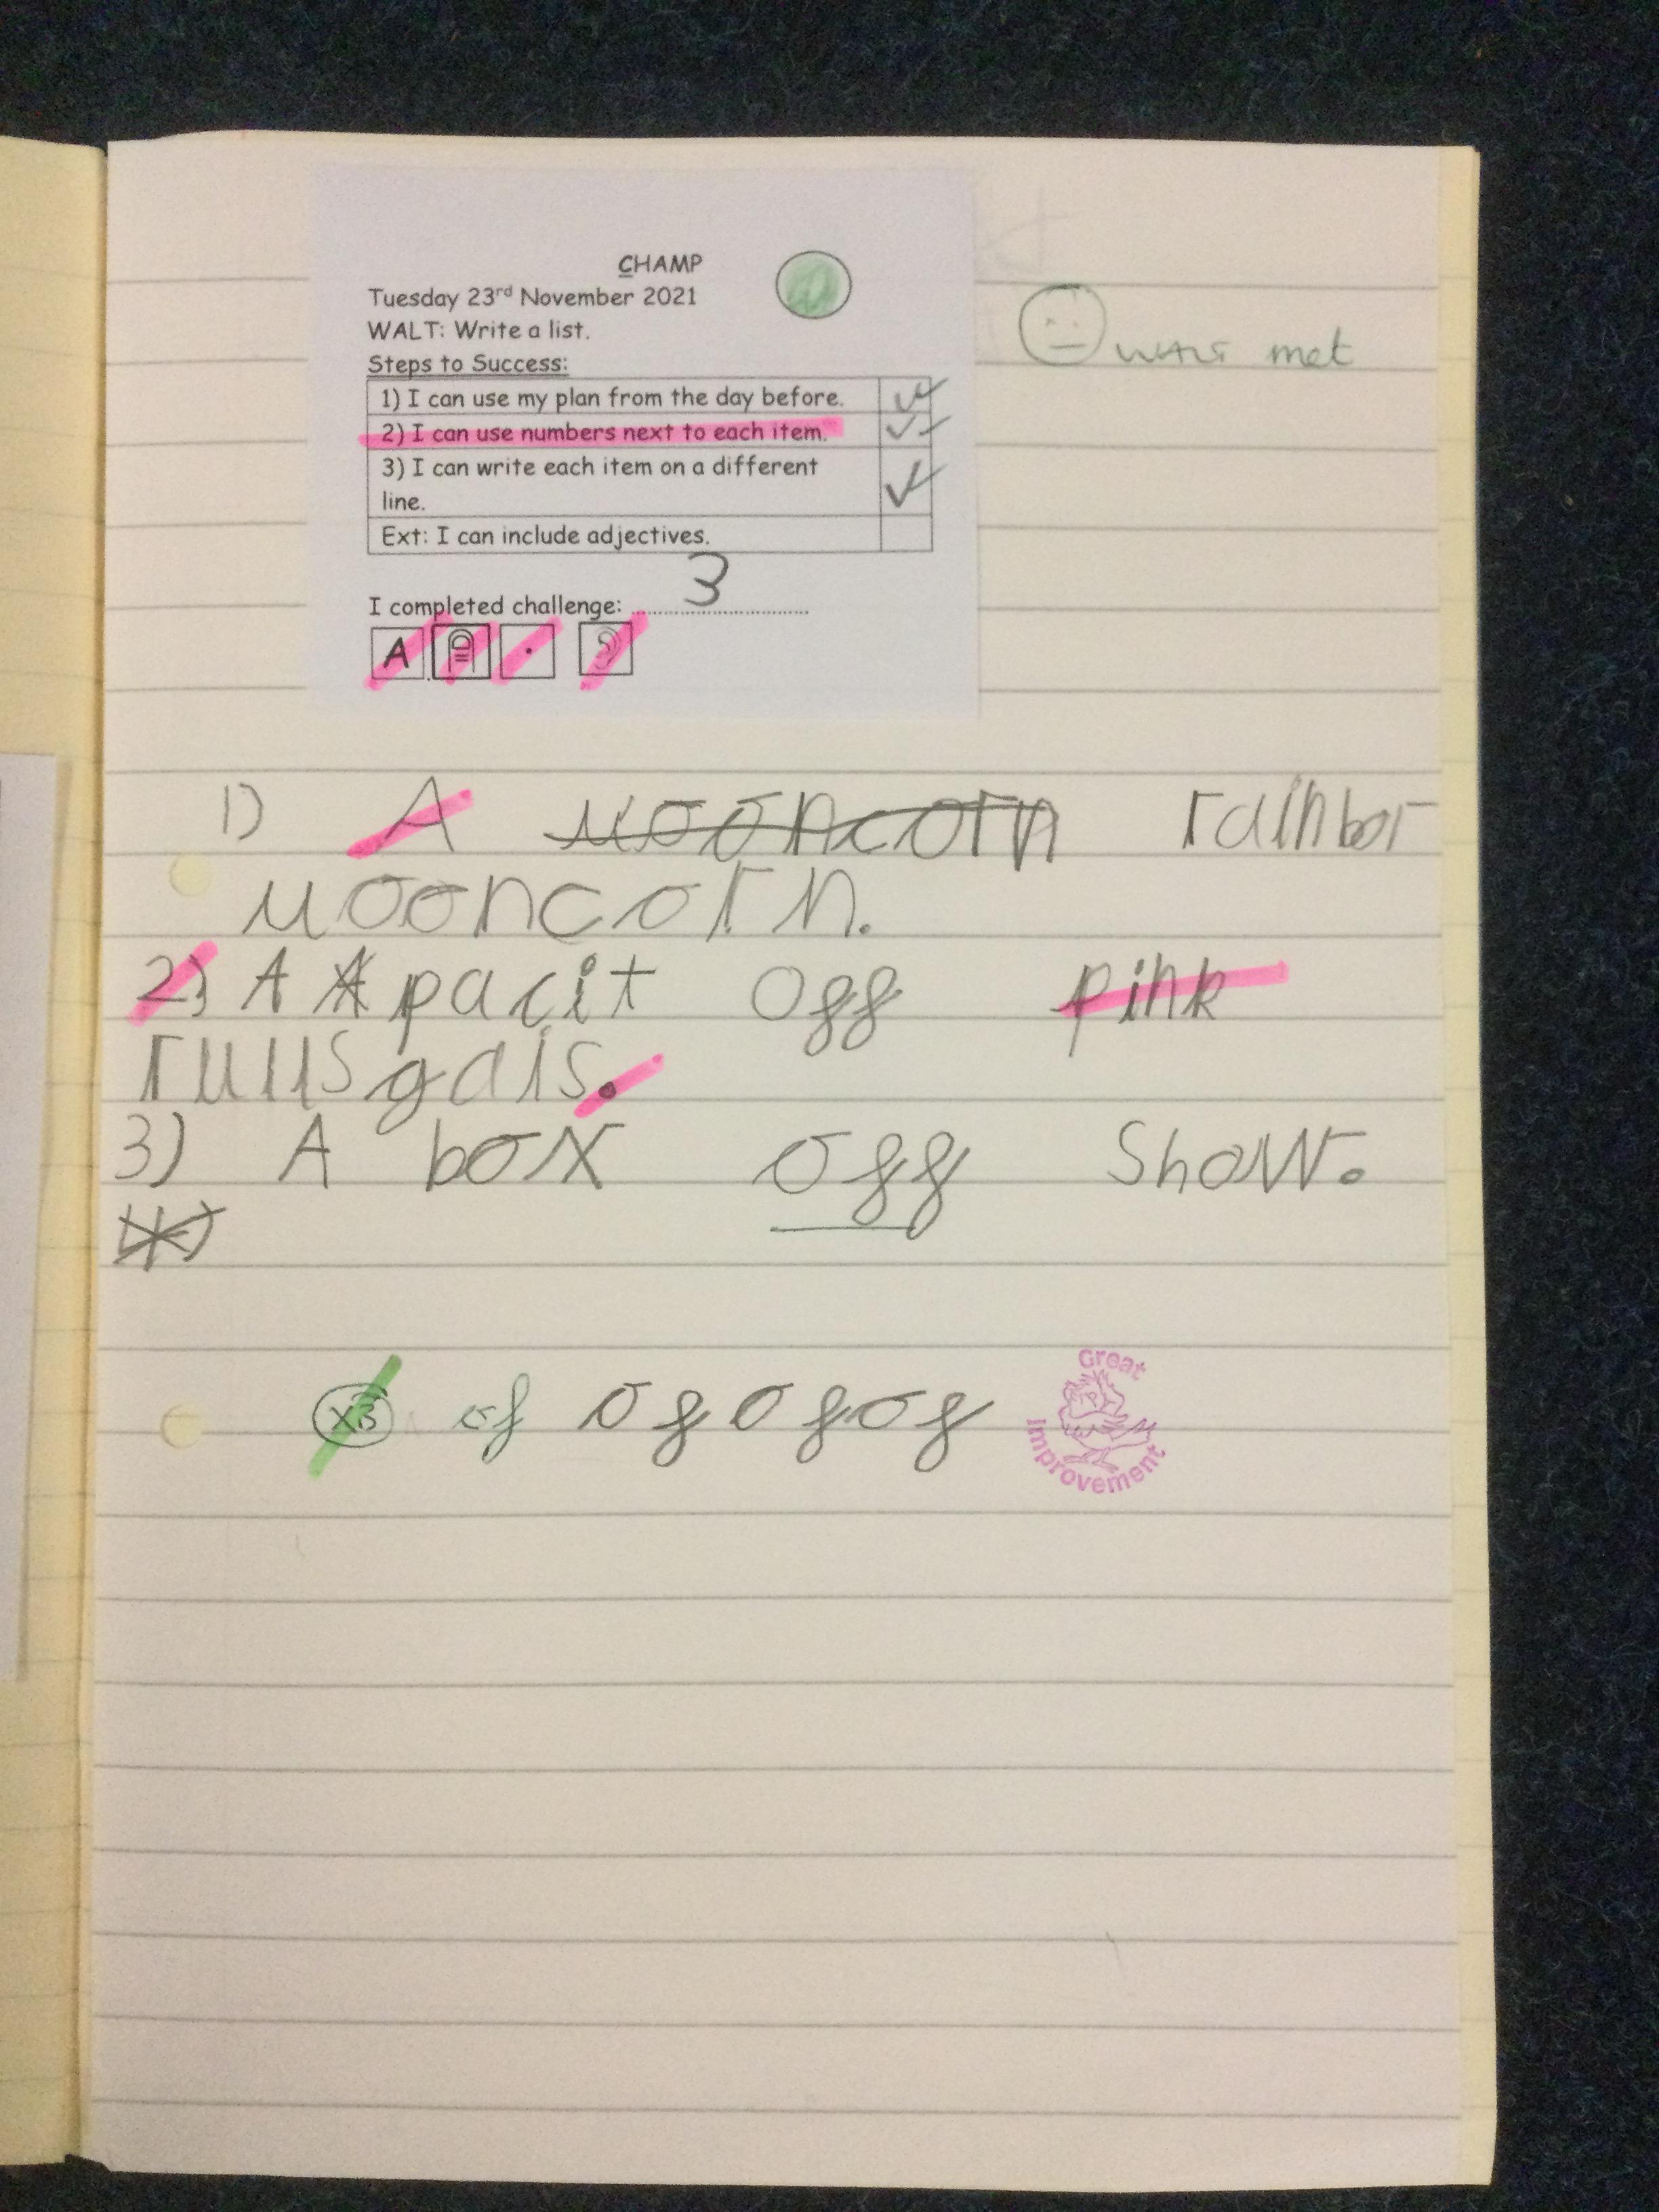 CHAMP
Tuesday 23rd November 2021
WALT: Write a list.
Steps to Success:
1) I can use my plan from the day before.
2) I can use numbers next to each item.
3) I can write each item on a different
line.
Ext: I can include adjectives.
I completed challenge: 3
A
WALT met
1) A uooncorn rainbor
uooncorn.
2) A pacit off pink
ruusgais.
3) A box off Show.
x3 of of of of
Great
Improvement